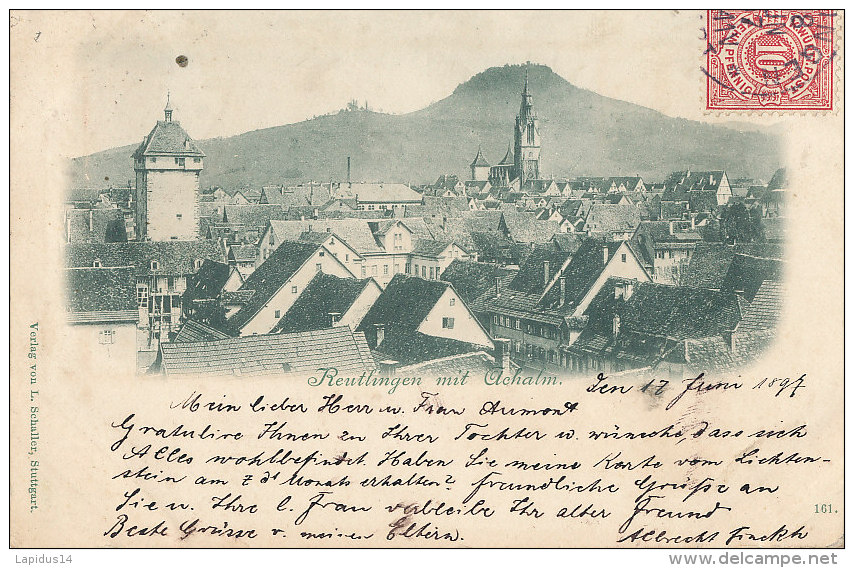 WÜRT. POST
10
ZEHN PFENNIG
Verlag von L. Schaller, Stuttgart.
Reutlingen mit Achalm.
Den 17 Juni 1897
Mein lieber Herr u. Frau Aumont
Gratulire Ihnen zu Ihrer Tochter u. wünsche, dass sich
Alles wohlbefindet. Haben Sie meine Karte vom Lichten-
stein am 7 ds Monats erhalten? freundliche Grüsse an
Sie u. Ihre l. Frau verbleibe Ihr alter Freund
Beste Grüsse v. meinen Eltern.
Albrecht Finckh
161.
Lapidus14
©delcampe.net